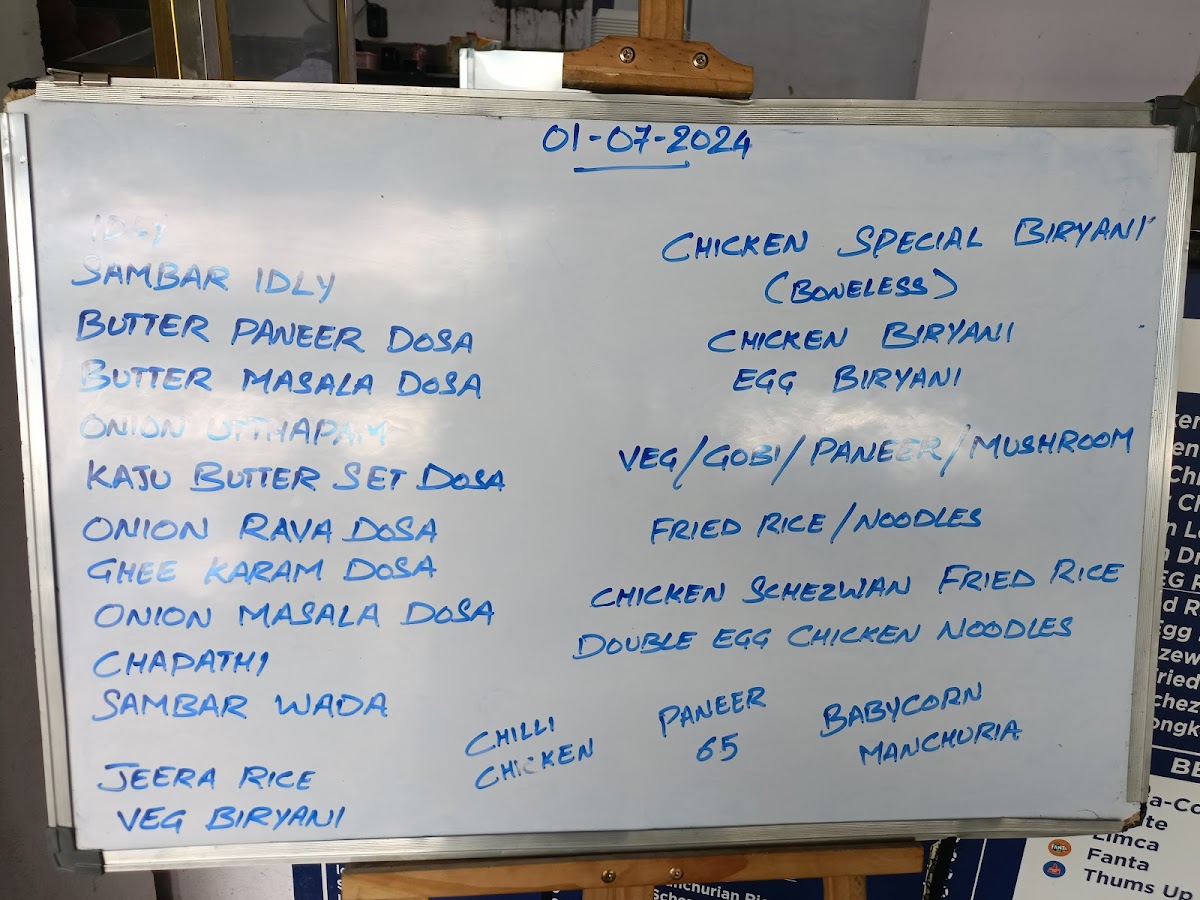 01-07-2024
IDLY
SAMBAR IDLY
BUTTER PANEER DOSA
BUTTER MASALA DOSA
ONION UTTHAPAM
KAJU BUTTER SET DOSA
ONION RAVA DOSA
GHEE KARAM DOSA
ONION MASALA DOSA
CHAPATHI
SAMBAR WADA
JEERA RICE
VEG BIRYANI
CHICKEN SPECIAL BIRYANI
(BONELESS)
CHICKEN BIRYANI
EGG BIRYANI
VEG/GOBI/PANEER/MUSHROOM
FRIED RICE/NOODLES
CHICKEN SCHEZWAN FRIED RICE
DOUBLE EGG CHICKEN NOODLES
CHILLI
CHICKEN
PANEER
65
BABYCORN
MANCHURIA
Limca
Fanta
Thums Up